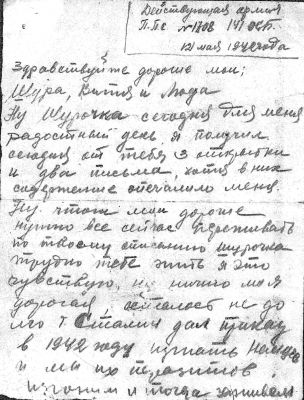 Действующая армия
П.Пс №1708 141 О.С.П.
12 мая 1942года
Здравствуйте дорогие мои;
Шура, Витя и Люда
Ну Шурочка сегодня для меня
радостный день я получил
сегодня от тебя 3 открытки
и два письма, хотя в них
содержение опечалило меня.
Ну чтож мои дорогие
нужно все сейчас переживать
по твоему описанию шурочка
трудно тебе жить я это
чувствую, ну ничего моя
дорогая осталось не до
лго т Сталин дал приказ
в 1942 году изгнать
и мы их паразитов
изгоним и тогда заживем